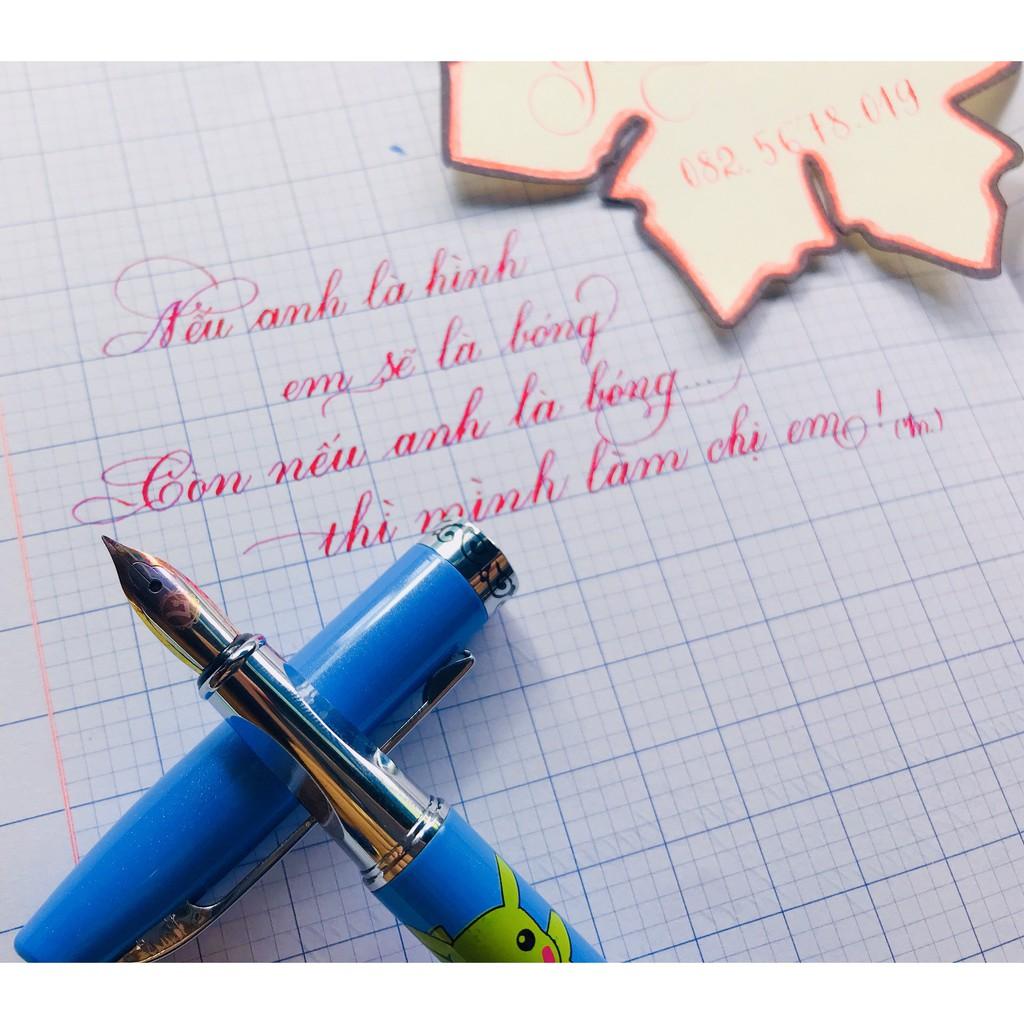 082.5678.019
Nếu anh là hình
em sẽ là bóng
Còn nếu anh là bóng...
thì mình làm chị em!